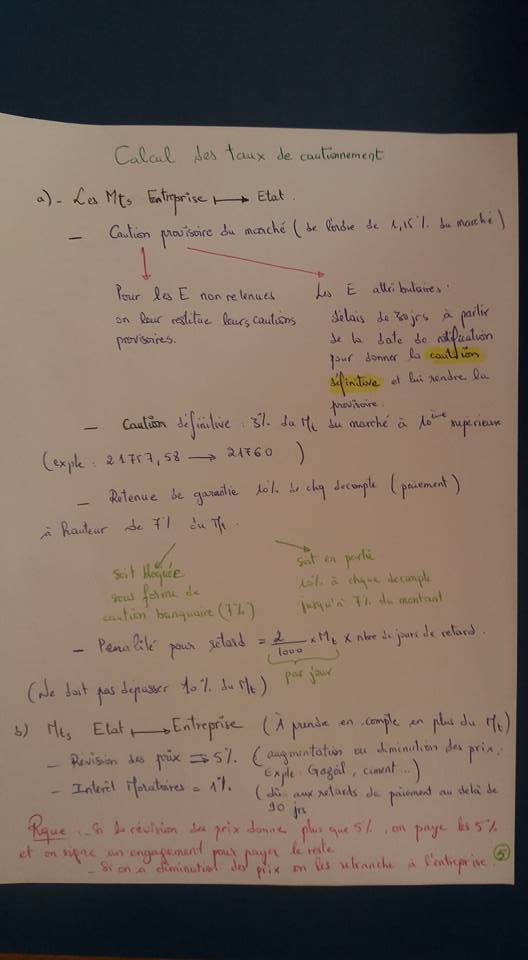 Calcul des taux de cautionnement
a) - Les Mts Entreprise ⟼ Etat.
- Caution provisoire du marché (de l'ordre de 1,15% du marché)
Pour les E non retenues
on leur restitue leurs cautions
provisoires.
Les E attributaires :
délais de 30 jrs à partir
de la date de notification
pour donner la caution
définitive et lui rendre la
provisoire.
- Caution définitive : 3% du Mt du marché à 10ème supérieur
(exple : 21757,58 → 21760 )
- Retenue de garantie 10% de chq decompte (paiement)
à hauteur de 7% du Mt.
soit bloquée
sous forme de
caution banquaire (7%)
soit en partie
10% à chque decompte
jusqu'à 7% du montant
- Penalité pour retard = 2/1000 × Mt × nbre de jours de retard.
par jour
(Ne doit pas depasser 10% du Mt)
b) Mts Etat ⟼ Entreprise (À prendre en compte en plus du Mt)
- Révision des prix ⇒ 5% (augmentation ou diminution des prix,
Exple : Gazoil, ciment...)
- Interêt Moratoires = 1% (dû aux retards de paiement au delà de
90 jrs
Rque : - Si la révision des prix donne plus que 5%, on paye les 5%
et on signe un engagement pour payer le reste
- Si on a diminution des prix on les retranche à l'entreprise.
5